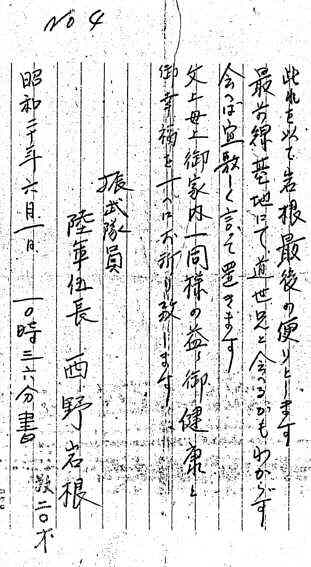 No 4
此れを以て岩根最後の便りとします
最前線基地にて道世兄と会へるかもわからず
会へば宜敷しく言って置きます
父上母上御家内一同様の益々御健康と
御幸福を 祈り致します
振武隊員
陸軍伍長 西野岩根
昭和二十年六月一日 一〇時三六分書 数二〇才